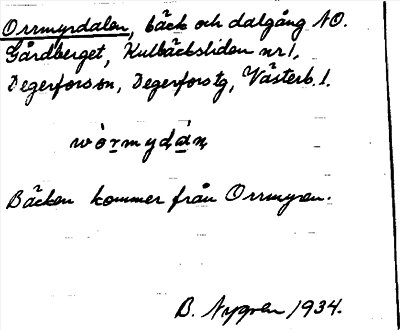 Orrmyrdalen, bäck och dalgång NO.
Gårdberget, Kulbäcksliden nr 1,
Degerfors sn, Degerfors tg, Västerb. l.
Bäcken kommer från Orrmyren.
B. Nygren 1934.